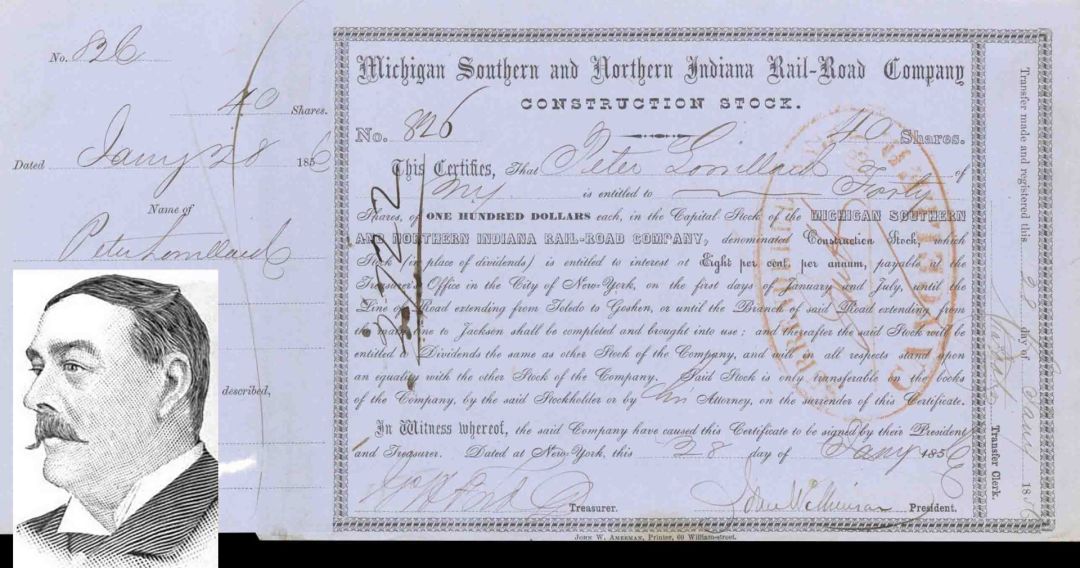 No. 826
40 Shares.
Dated Jany 28 1856
Name of
Peter Lorillard
described,
Michigan Southern and Northern Indiana Rail-Road Company
CONSTRUCTION STOCK.
No. 826 40 Shares.
This Certifies, That Peter Lorillard of
NY is entitled to Forty
Shares, of ONE HUNDRED DOLLARS each, in the Capital Stock of the MICHIGAN SOUTHERN
AND NORTHERN INDIANA RAIL-ROAD COMPANY, denominated Construction Stock, which
Stock (in place of dividends) is entitled to interest at Eight per cent. per annum, payable at the
Treasurer's Office in the City of New-York, on the first days of January and July, until the
Line of Road extending from Toledo to Goshen, or until the Branch of said Road extending from
the main line to Jackson shall be completed and brought into use; and thereafter the said Stock will be
entitled to Dividends the same as other Stock of the Company, and will in all respects stand upon
an equality with the other Stock of the Company. Said Stock is only transferable on the books
of the Company, by the said Stockholder or by his Attorney, on the surrender of this Certificate.
In Witness whereof, the said Company have caused this Certificate to be signed by their President
and Treasurer. Dated at New-York, this 28 day of Jany 1856
Treasurer. President.
JOHN W. AMERMAN, Printer, 60 William-street.
Transfer made and registered this 28 day of Jany 1856
Transfer Clerk.